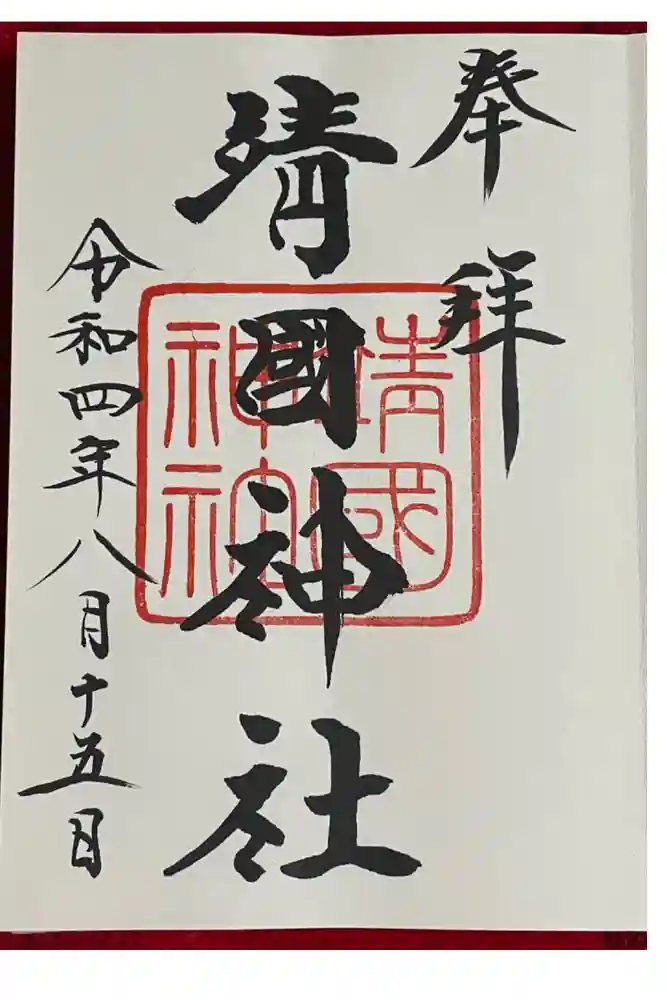 奉拝
靖國神社
靖國
神社
令和四年八月十五日